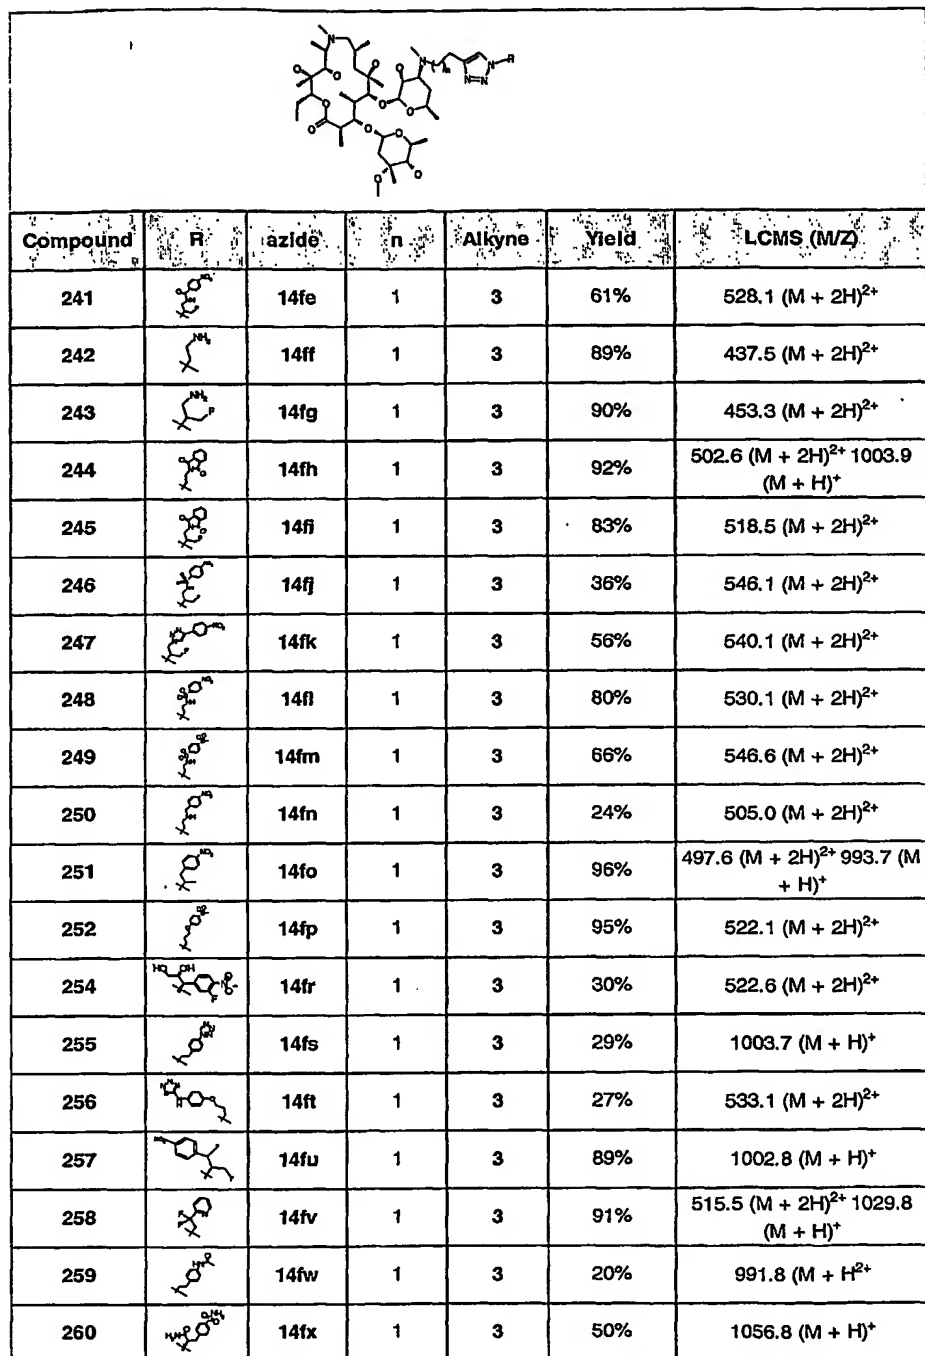 Compound R azide n Alkyne Yield LCMS (M/Z)
241 14fe 1 3 61% 528.1 (M + 2H)2+
242 14ff 1 3 89% 437.5 (M + 2H)2+
243 14fg 1 3 90% 453.3 (M + 2H)2+
244 14fh 1 3 92% 502.6 (M + 2H)2+ 1003.9
(M + H)+
245 14fi 1 3 83% 518.5 (M + 2H)2+
246 14fj 1 3 36% 546.1 (M + 2H)2+
247 14fk 1 3 56% 540.1 (M + 2H)2+
248 14fl 1 3 80% 530.1 (M + 2H)2+
249 14fm 1 3 66% 546.6 (M + 2H)2+
250 14fn 1 3 24% 505.0 (M + 2H)2+
251 14fo 1 3 96% 497.6 (M + 2H)2+ 993.7 (M
+ H)+
252 14fp 1 3 95% 522.1 (M + 2H)2+
254 14fr 1 3 30% 522.6 (M + 2H)2+
255 14fs 1 3 29% 1003.7 (M + H)+
256 14ft 1 3 27% 533.1 (M + 2H)2+
257 14fu 1 3 89% 1002.8 (M + H)+
258 14fv 1 3 91% 515.5 (M + 2H)2+ 1029.8
(M + H)+
259 14fw 1 3 20% 991.8 (M + H2+
260 14fx 1 3 50% 1056.8 (M + H)+